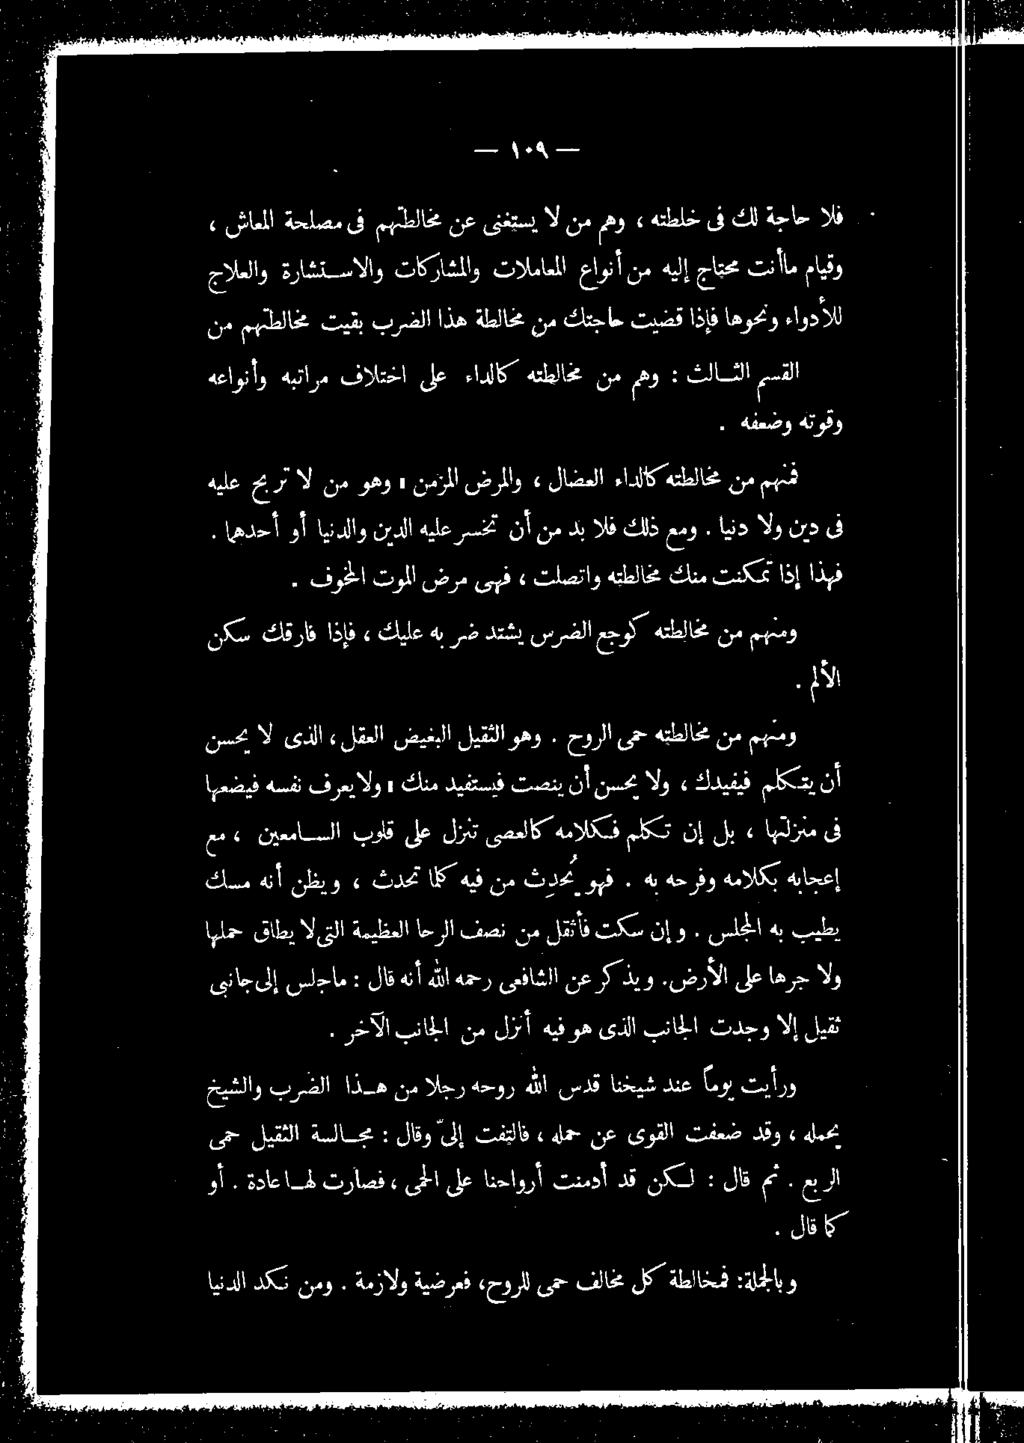 — ١٠٩ —
فلا حاجة لك فى خلطته ، وهم من لا يستغنى عن مخالطتهم فى مصلحة المعاش ،
وقيام ماأنت محتاج إليه من أنواع المعاملات والمشاركات والاستشارة والعلاج
للأدواء ونحوها فإذا قضيت حاجتك من مخالطة هذا الضرب بقيت مخالطتهم من
القسم الثالث : وهم من مخالطته كالداء على اختلاف مراتبه وأنواعه
وقوته وضعفه .
فمنهم من مخالطته كالداء العضال ، والمرض المزمن ، وهو من لا تربح عليه
فى دين ولا دنيا . ومع ذلك فلا بد من أن تخسر عليه الدين والدنيا أو أحدهما .
فهذا إذا تمكنت منك مخالطته واتصلت ، فهى مرض الموت المخوف .
ومنهم من مخالطته كوجع الضرس يشتد ضر به عليك ، فإذا فارقك سكن
الألم .
ومنهم من مخالطته حمى الروح . وهو الثقيل البغيض العقل، الذى لا يحسن
أن يتكلم فيفيدك ، ولا يحسن أن ينصت فيستفيد منك ، ولايعرف نفسه فيضعها
فى منزلتها ، بل إن تكلم فكلامه كالعصى تنزل على قلوب السامعين ، مع
إعجابه بكلامه وفرحه به . فهو يُحدِث من فيه كلما تحدث ، ويظن أنه مسك
يطيب به المجلس . وإن سكت فأثقل من نصف الرحا العظيمة التى لا يطاق حملها
ولا جرها على الأرض. ويذكر عن الشافعى رحمه الله أنه قال : ماجلس إلى جانبى
ثقيل إلا وجدت الجانب الذى هو فيه أنزل من الجانب الآخر .
ورأيت يوماً عند شيخنا قدس الله روحه رجلا من هذا الضرب والشيخ
يحمله ، وقد ضعفت القوى عن حمله ، فالتفت إلىّ وقال : مجالسة الثقيل حمى
الربع . ثم قال : لكن قد أدمنت أرواحنا على الحمى ، فصارت لها عادة . أو
كما قال .
وبالجملة: فمخالطة كل مخالف حمى للروح، فعرضية ولازمة . ومن نكد الدنيا